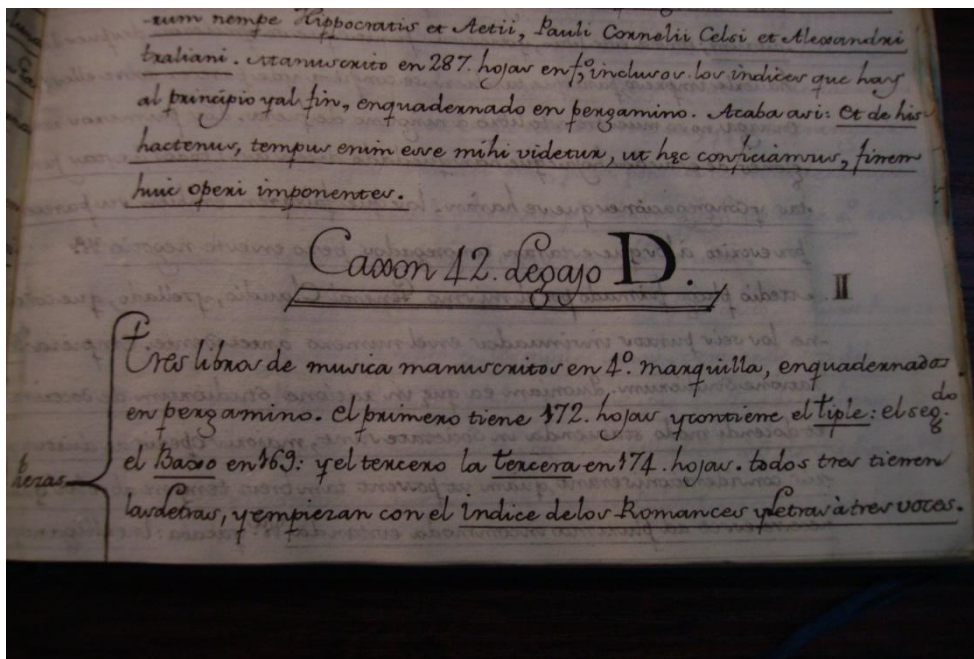 -rum nempe Hippocratis et Aetii, Pauli Cornelii Celsi et Alexandri
traliani. Manuscrito en 287. hojas en fº, inclusos los indices que hay
al principio y al fin, enquadernado en pergamino. Acaba asi: Et de his
hactenus, tempus enim esse mihi videtur, ut hęc conficiamus, finem
huic operi imponentes.
Caxon 42. Legajo D.
II
Tres libros de musica manuscritos en 4º. marquilla, enquadernados
en pergamino. El primero tiene 172. hojas y contiene el tiple: el seg.do
el Baxo en 169: y el tercero la tercera en 174. hojas. todos tres tienen
las Letras, y empiezan con el Indice de los Romances y Letras à tres voces.